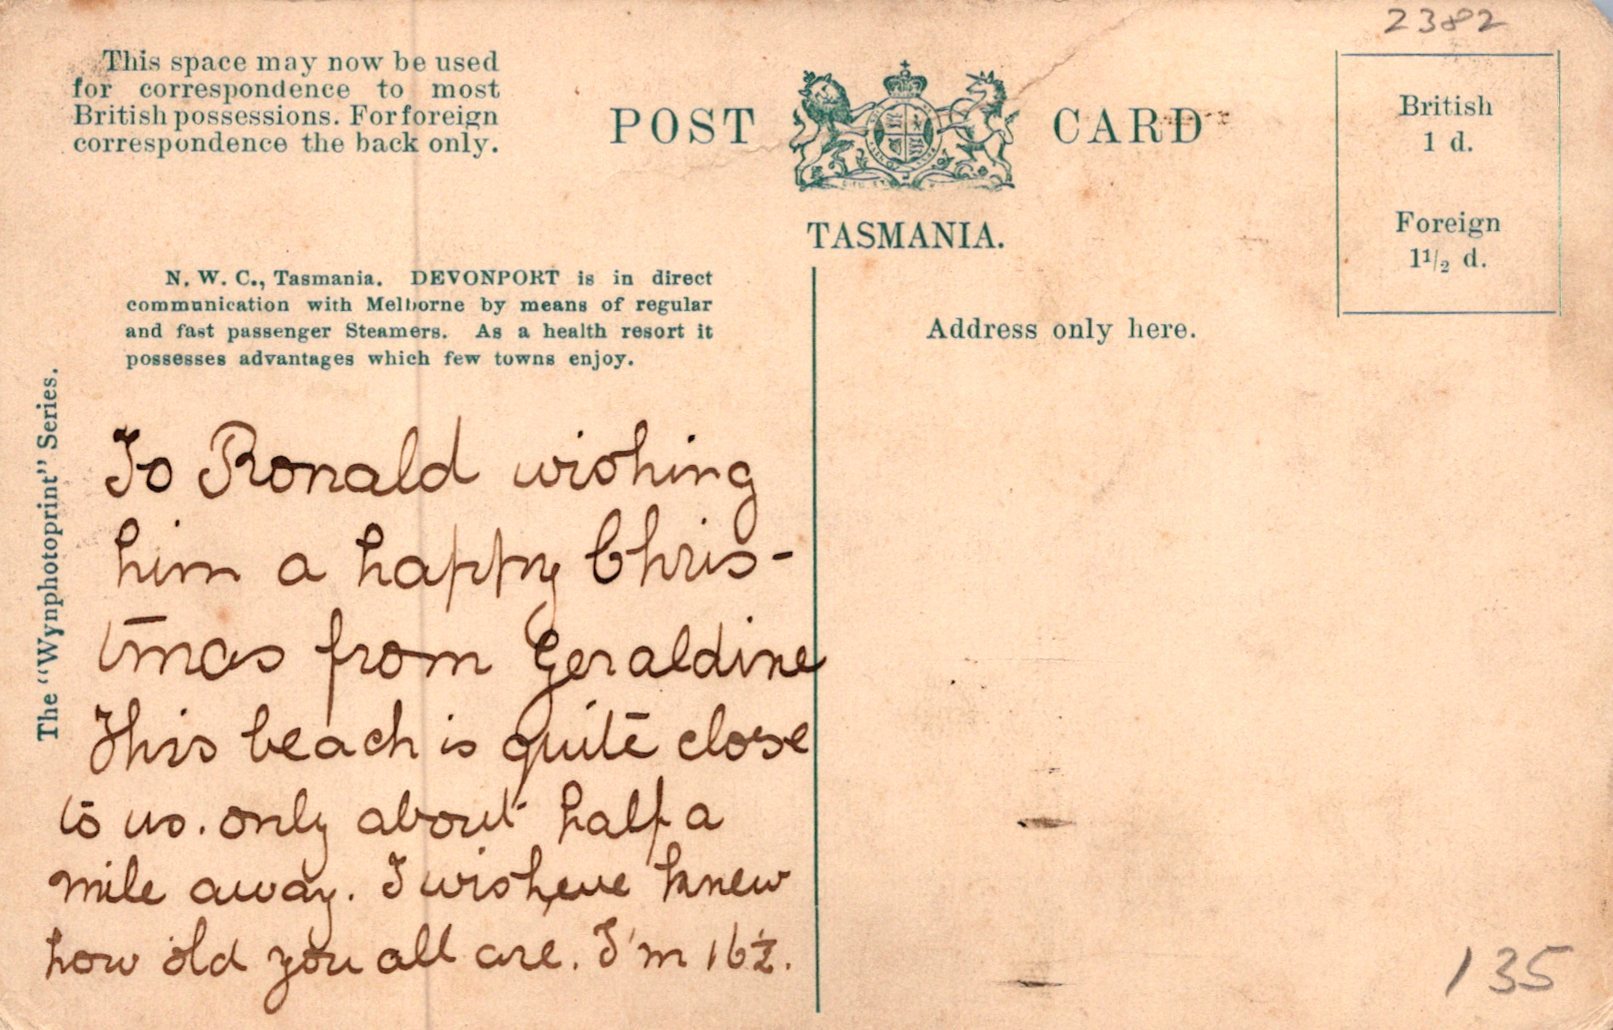 2382
This space may now be used
for correspondence to most
British possessions. For foreign
correspondence the back only.
POST CARD
TASMANIA.
British
1 d.
Foreign
1 1/2 d.
N. W. C., Tasmania. DEVONPORT is in direct
communication with Melborne by means of regular
and fast passenger Steamers. As a health resort it
possesses advantages which few towns enjoy.
Address only here.
The "Wynphotoprint" Series.
To Ronald wishing
him a happy Chris-
tmas from Geraldine
This beach is quite close
to us. only about half a
mile away. I wish we knew
how old you all are. I'm 16½.
135